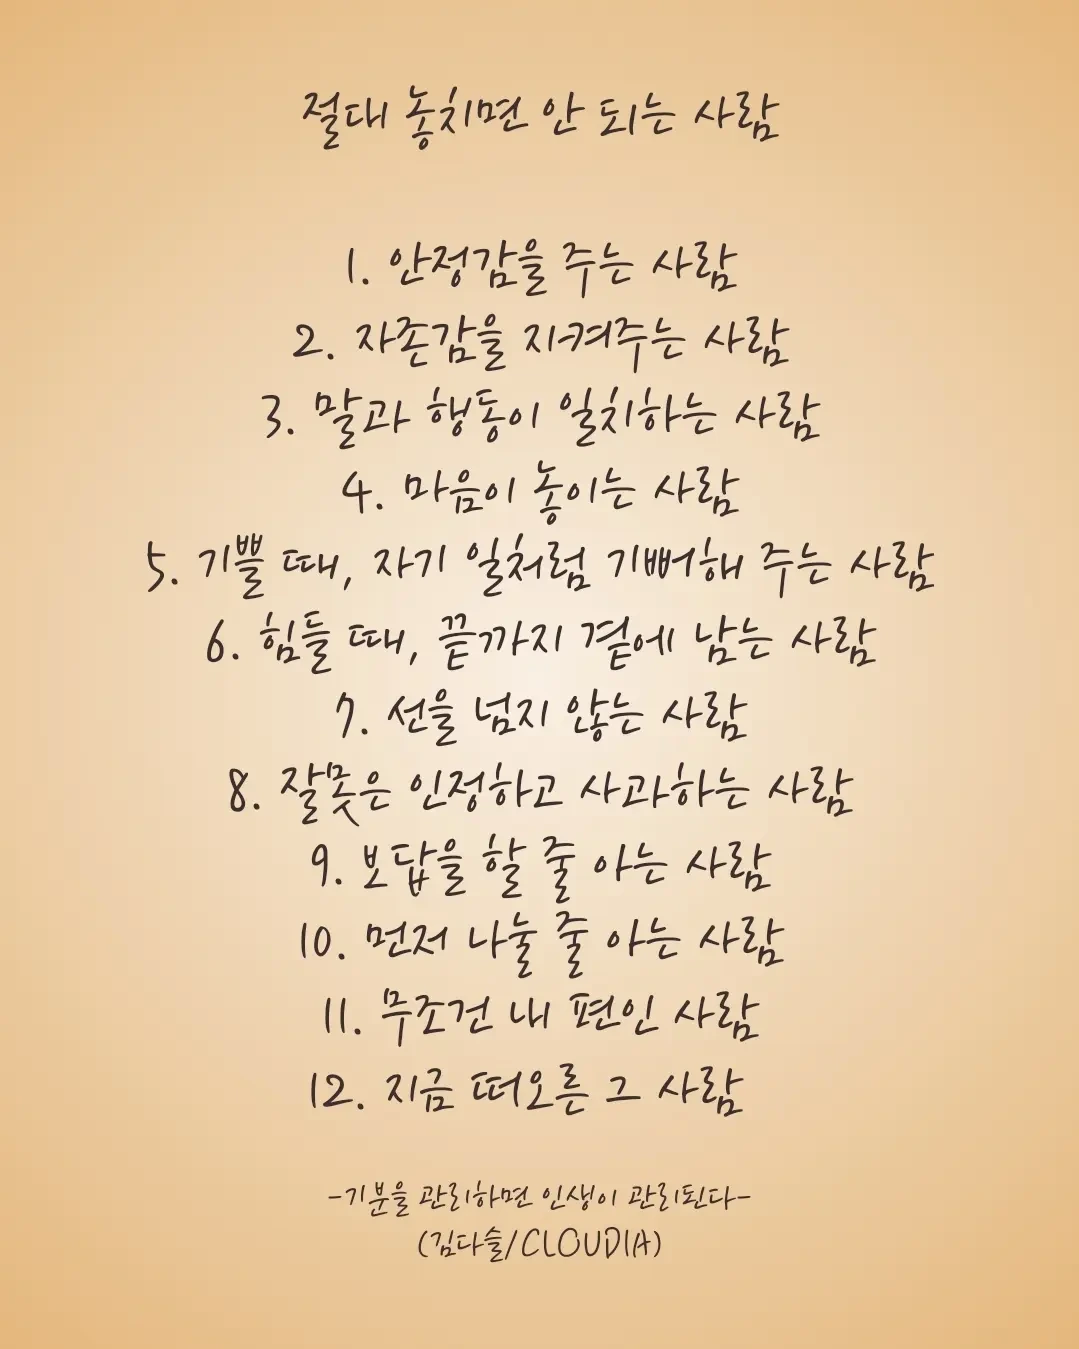 절대 놓치면 안 되는 사람
1. 안정감을 주는 사람
2. 자존감을 지켜주는 사람
3. 말과 행동이 일치하는 사람
4. 마음이 놓이는 사람
5. 기쁠 때, 자기 일처럼 기뻐해 주는 사람
6. 힘들 때, 끝까지 곁에 남는 사람
7. 선을 넘지 않는 사람
8. 잘못은 인정하고 사과하는 사람
9. 보답을 할 줄 아는 사람
10. 먼저 나눌 줄 아는 사람
11. 무조건 내 편인 사람
12. 지금 떠오른 그 사람
-기분을 관리하면 인생이 관리된다-
(김다슬/CLOUDIA)